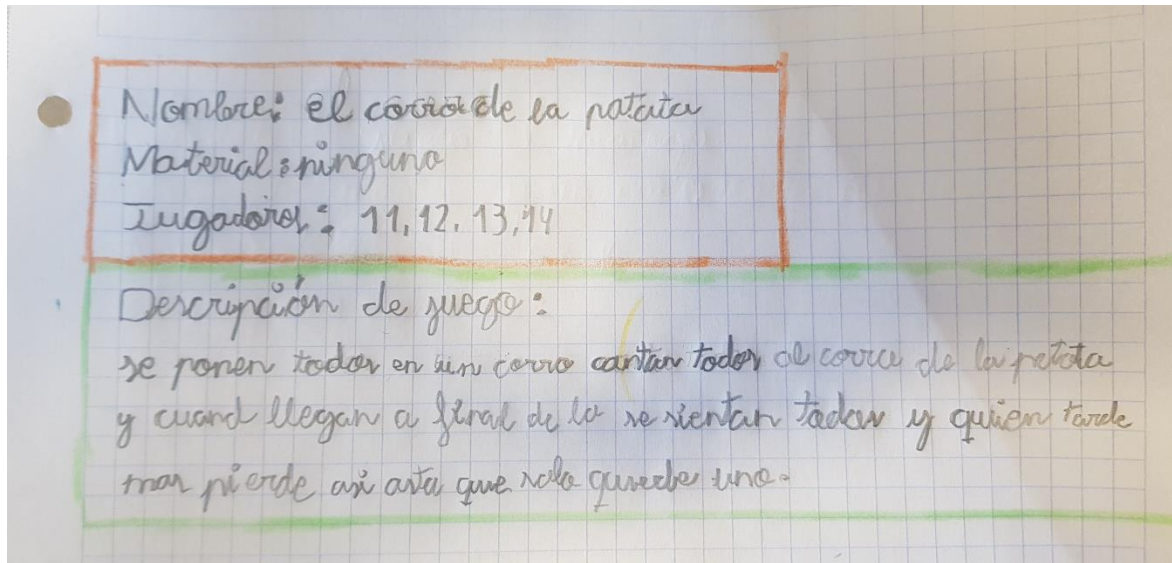 Nombre: el corro de la patata
Material: ninguno
Jugadores: 11, 12, 13, 14
Descripción de juego:
se ponen todos en un corro cantan todos al corro de la patata
y cuand llegan a final de la se sientan todos y quien tarde
mas pierde asi asta que solo quede uno.